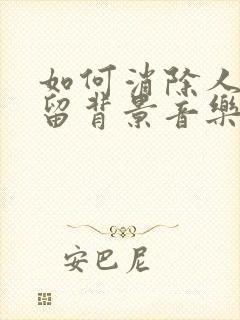 如何消除人
留背景音樂
安巴尼